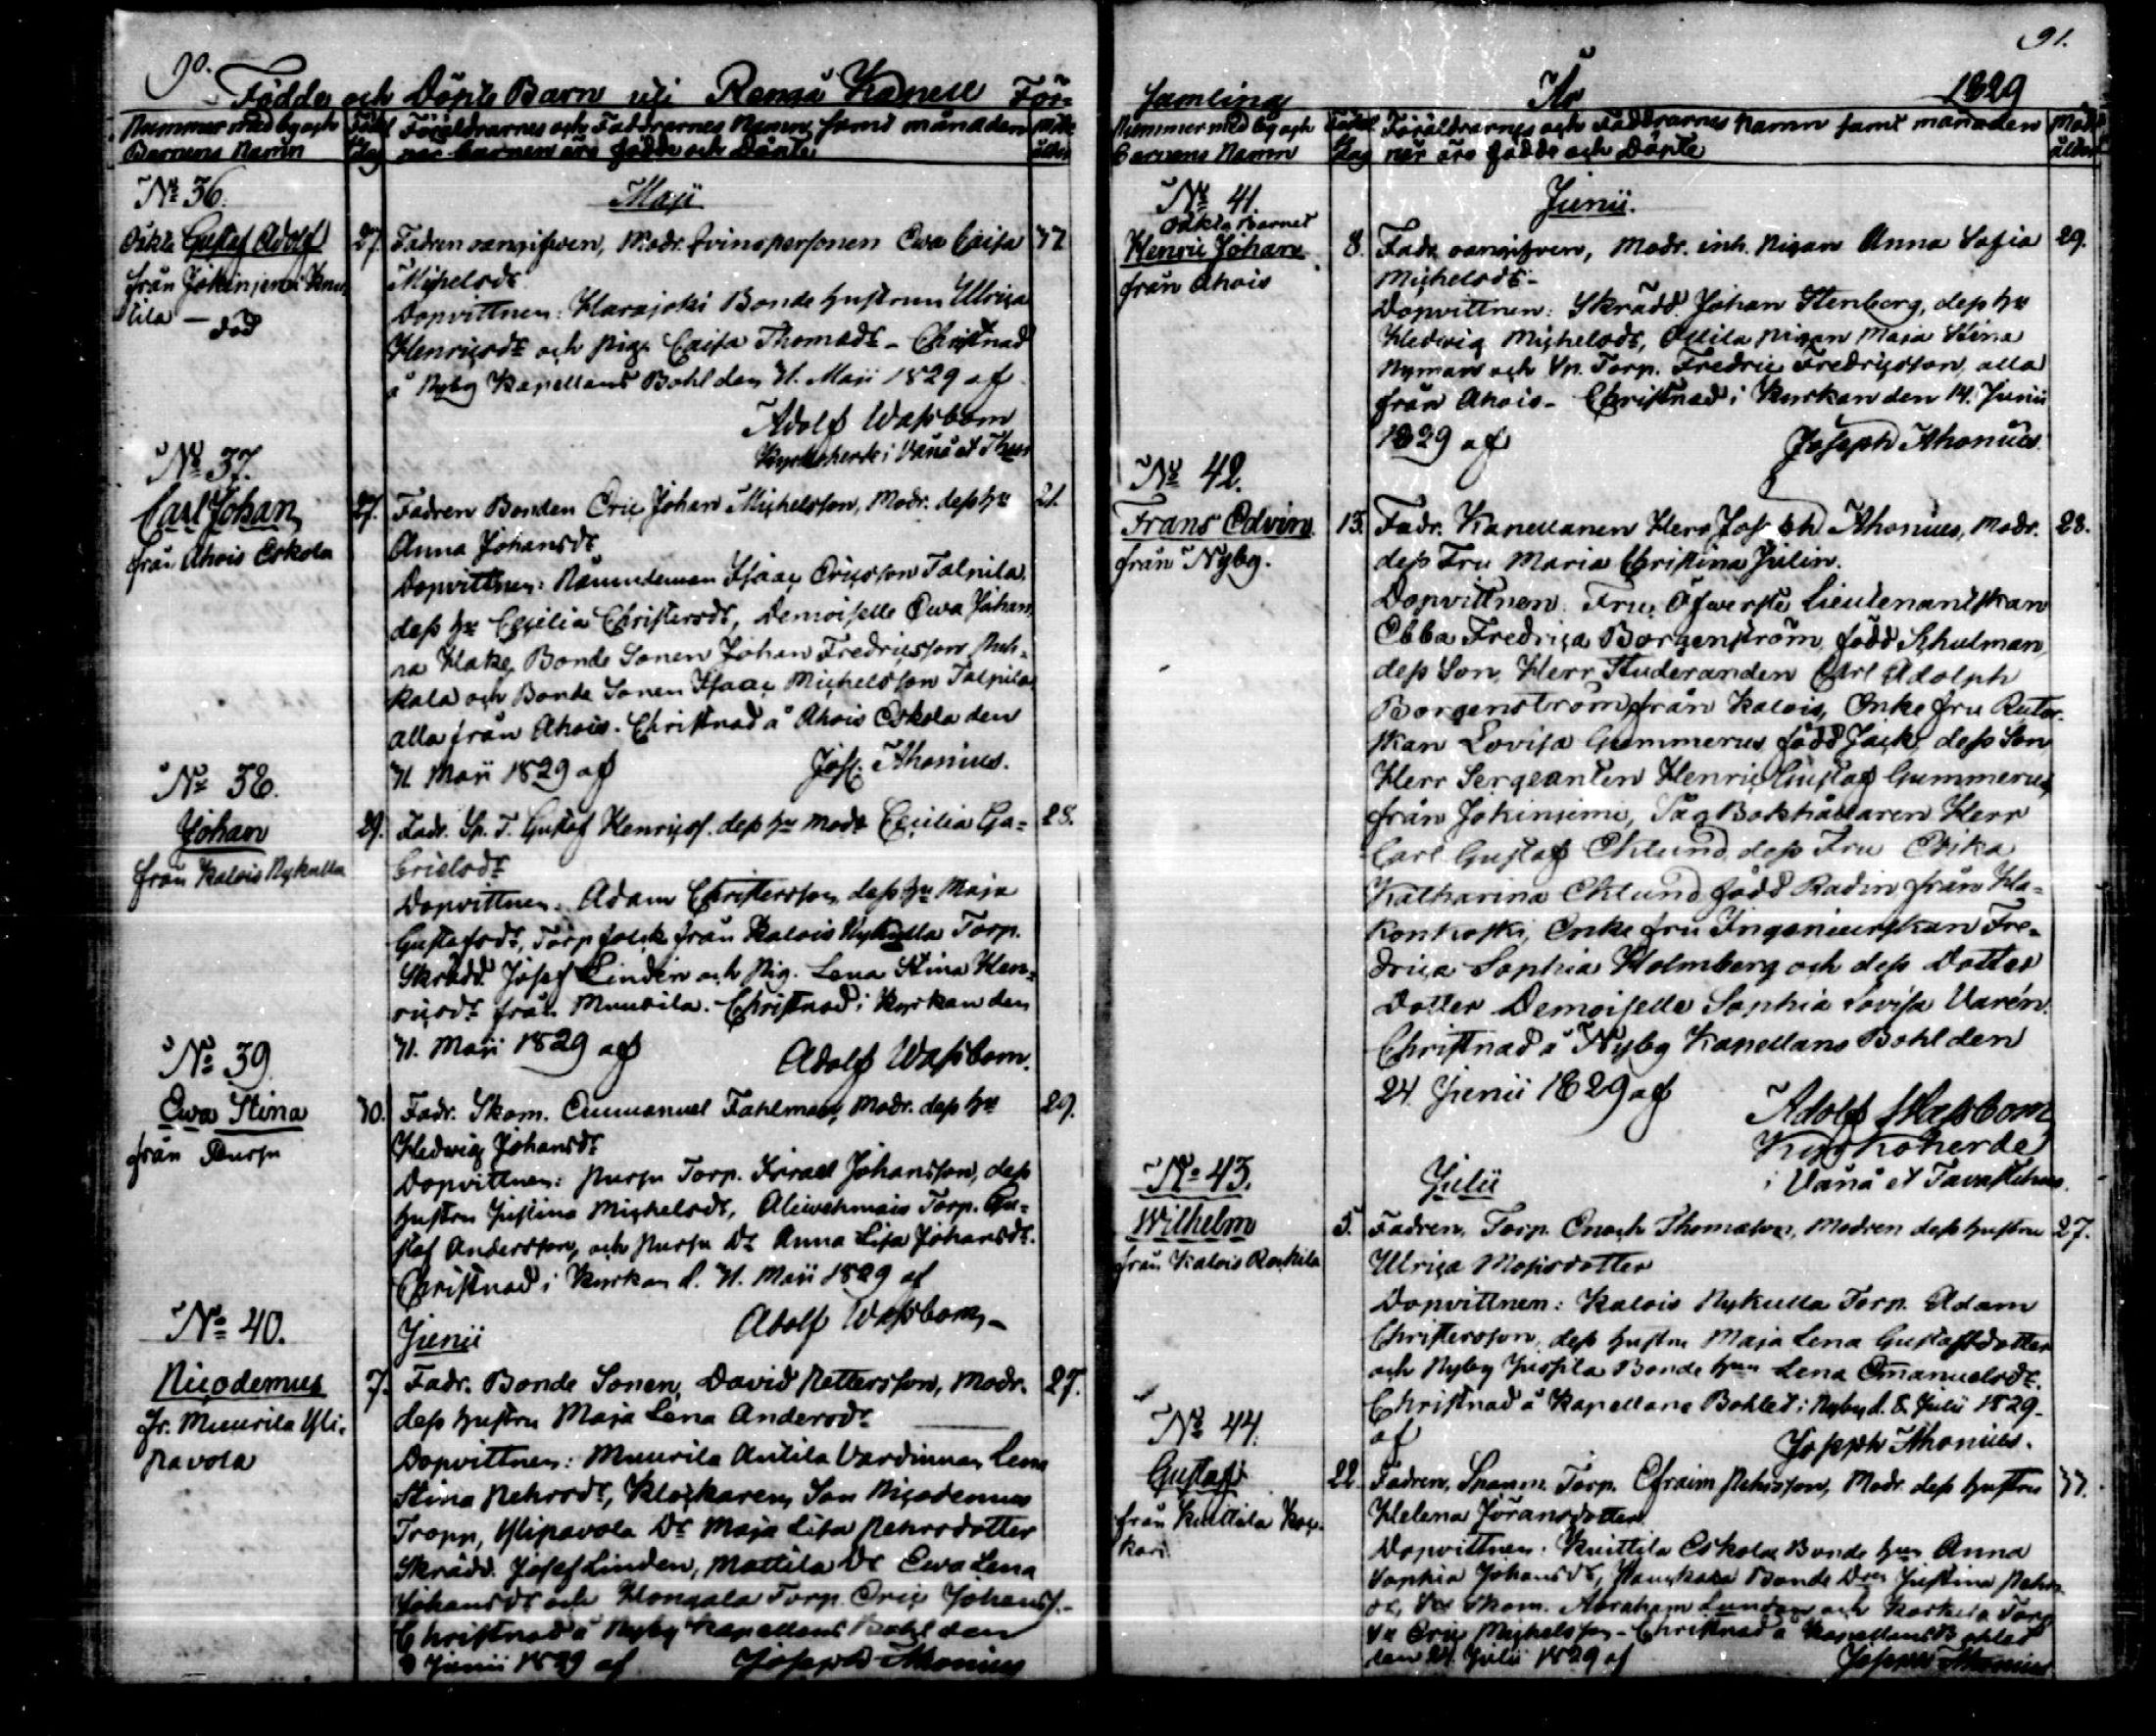 90.
Födde och Döpte Barn uti Rengå Kapell För-
Nummer med by och Barnens Namn
Födel dag
Föräldrarnes och Faddrarnes Namn samt månaden
när barnen äro födde och Döpte
ålder
Maji
No 36.
Oäkta Gustaf Adolf
från Jokinjemi
död
27.
Fadren oangifwen, Modr. qvinspersonen Ewa Caisa
Michelsdr
Dopvittnen: Harajoki Bonde hustrun Ulrica
Henricsdr och pig. Caisa Thomasdr - Christnad
å Nyby Kapellans Bohl den 31. Maji 1829 af
Adolf Wassbom
Kyrkoherde i Vånå et Thus
No 37.
Carl Johan
från Ahois Eskola
27.
Fadren Bonden Eric Johan Michelsson, Modr. dess hu
21.
Anna Johansdr
Dopvittnen: Nämndeman Isaac Ericsson Talpila,
dess hu Cecilia Christersdr, Demoiselle Ewa Johan
na Hake, Bonde Sonen Johan Fredricsson
kala och Bonde Sonen Isaac Michelsson Talpila
alla från Ahois. Christnad å Ahois Eskola den
31. Maji 1829 af
Jos. Ahonius.
No 38.
Johan
från Kalois Nykulla
29.
Fadr. Sp. T. Gustaf Henricss. dess hu modr Cecilia Ga-
28.
brielsdr
Dopvittnen: Adam Christersson, dess hu Maja
Gustafsdr, Torpfolck från Kalois Nykulla Torp.
Skrädd. Josef Linden och Pig. Lena Stina Hen-
ricsdr från Muurila. Christnad i Kyrkan den
31. Maji 1829 af
Adolf Wassbom.
No 39
Ewa Stina
från
30.
Fadr. Skom. Emmanuel Fahlman, Modr. dess hu
29.
Hedwig Johansdr
Dopvittnen: Torp. Israel Johansson, dess
hustru Justina Michelsdr, Torp. Gu-
staf Andersson, och Dr Anna Lisa Johansdr.
Christnad i Kyrkan d. 31. Maii 1829 af
Adolf Wassbom
Junii
No 40.
Nicodemus
fr. Muurila Yli-
pavola
7.
Fadr. Bonde Sonen, David Pettersson, Modr.
27.
dess hustru Maja Lena Andersdr
Dopvittnen: Muurila Antila Vardinnan Lena
Stina Pehrsdr, Klockaren Son Nicodemus
Tropp, Ylipavola Dr Maja Lisa Pehrsdotter
Skrädd. Josef Linden, Mattila Dr Ewa Lena
Johansdr och Hongala Torp. Eric Johanss.
Christnad å Nyby Kapellans Bohl den
Junii 1829 af
Joseph Ahonius
91.
Samling
År
1829
Nummer med by och
Barnens Namn
Födel dag
Föräldrarnes och Faddrarnes Namn samt månaden
när äro födde och Döpte
Modr ålder
Junii.
No 41.
Oäkta Barnet
Henric Johan
från Ahois
8.
Fadr. oangifven, Modr. inh. Pigan Anna Sofia
29.
Michelsdr
Dopvittnen: Skrädd. Johan Stenberg, dess hu
Hedvig Michelsdr, Ollila Pigan Maja Stina
Nyman och Sp. Torp. Fredric Fredricsson, alla
från Ahois - Christnad i Kyrkan den 14. Junii
1829 af
Joseph Ahonius.
No 42.
Frans Edvin
från Nyby.
13.
Fadr. Kapellanen Herr Joseph Ahonius, Modr.
28.
dess Fru Maria Christina Julin.
Dopvittnen: Fru Öfwerste Lieutenantskan
Ebba Fredrica Borgenström född Schulman,
dess Son, Herr Studeranden Carl Adolph
Borgenström från Kalois, Enke fru
skan Lovisa Gummerus född Jack, dess Son
Herr Sergeanten Henric Gustaf Gummerus,
från Jokiniemi, SågBokhållaren Herr
Carl Gustaf Eklund, dess Fru Erika
Katharina Eklund född Radin från Ha-
konkoski, Enke fru Ingenieurskan Fre-
drica Sophia Holmberg och dess Dotter
Dotter Demoiselle Sophia Lovisa Varén.
Christnad å Nyby Kapellans Bohl den
24 Junii 1829 af
Adolf Wassbom
Kyrkoherde
i Vånå et Tavastehus.
No 43.
Julii
Wilhelm
från Kalois
5.
Fadren, Torp. Enoch Thomasson, Modren dess hustru
27.
Ulrica
Dopvittnen: Kalois Nykulla Torp. Adam
Christersson, dess hustru Maja Lena Gustafsdotter
och Nyby Bonde hun Lena Emanuelsdr.
Christnad å Kapellans Bohlet i Nyby d. 8 Julii 1829
af
Joseph Ahonius.
No 44.
Gustaf
från Kuittila
22.
Fadren, Torp. Efraim Pehrsson, Modr. dess hustru
Helena Göransdotter
Dopvittnen: Kuittila Eskola Bonde hun Anna
Sophia Johansdr, Bonde Justina
Skom. Abraham och Torp
Eric Michelsson - Christnad å Kapellans Bohlet
den Julii 1829 af
Joseph Ahonius